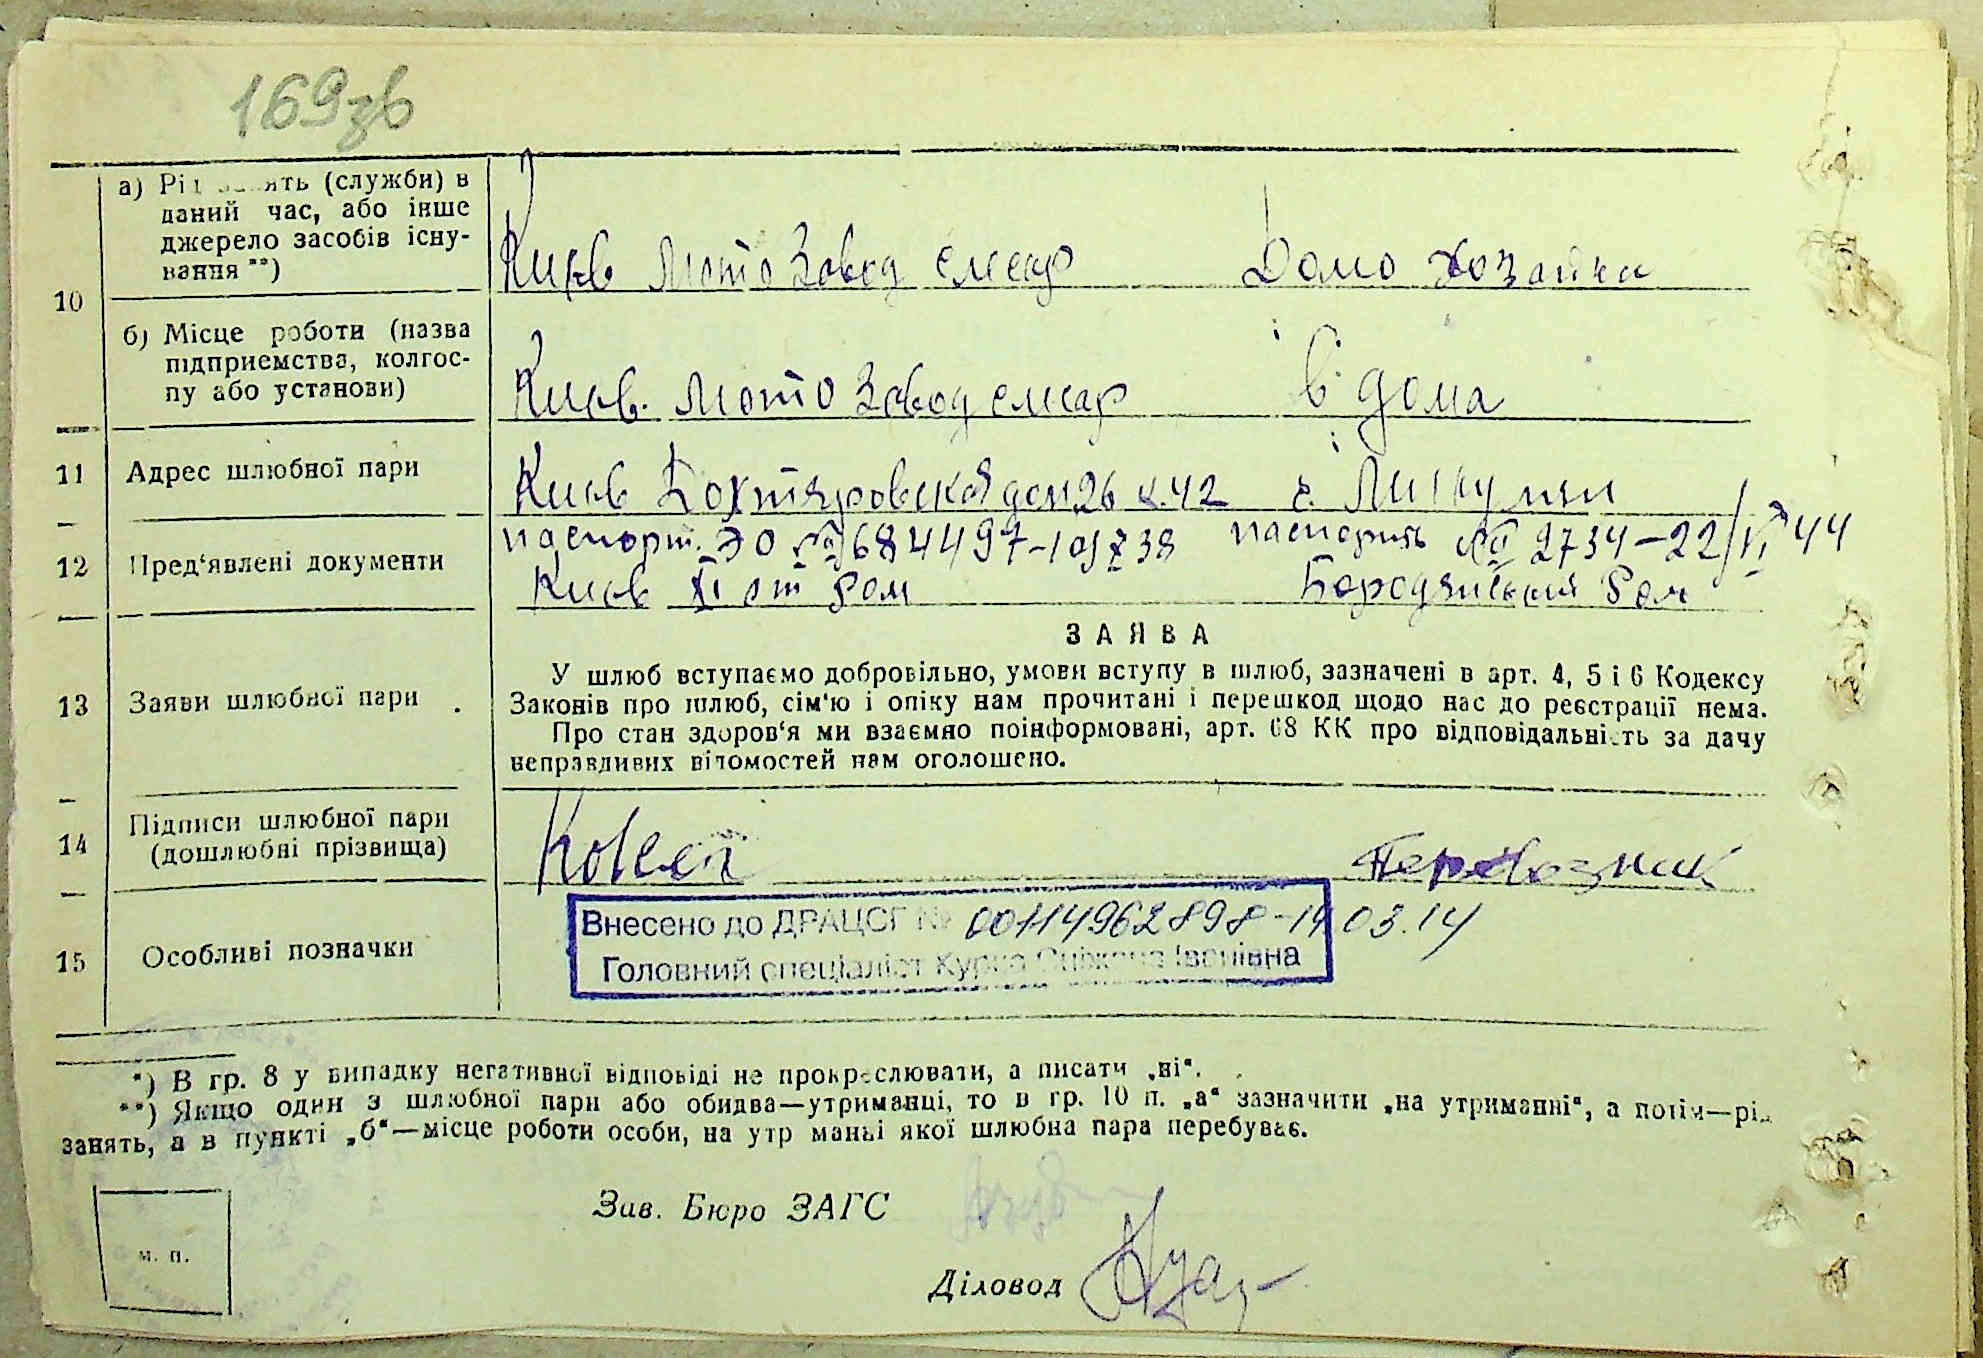 169зв
10
а) Рід занять (служби) в
даний час, або інше
джерело засобів існу-
вання **)
Киев Мото Завод слесар Домо хозайка
б) Місце роботи (назва
підприємства, колгос-
пу або установи)
Киев. Мото Завод слесар в дома
11 Адрес шлюбної пари
Киев дом 26 к. 42 с. Микуличи
12 Пред'явлені документи
паспорт. ЭО № 684497 паспорть № 2734-22/VI 44
Киев XI от Ром Бородянский Ром
13 Заяви шлюбної пари
ЗАЯВА
У шлюб вступаємо добровільно, умови вступу в шлюб, зазначені в арт. 4, 5 і 6 Кодексу
Законів про шлюб, сім'ю і опіку нам прочитані і перешкод щодо нас до реєстрації нема.
Про стан здоров'я ми взаємно поінформовані, арт. 68 КК про відповідальність за дачу
неправдивих відомостей нам оголошено.
14 Підписи шлюбної пари
(дошлюбні прізвища)
Перевозник
15 Особливі позначки
Внесено до ДРАЦСГ № 00114962898-14.03.14
Головний спеціаліст Іванівна
*) В гр. 8 у випадку негативної відповіді не прокреслювати, а писати „ні“.
**) Якщо один з шлюбної пари або обидва—утриманці, то в гр. 10 п. „а“ зазначити „на утриманні“, а потім—рід
занять, а в пункті „б“—місце роботи особи, на утр манні якої шлюбна пара перебуває.
Зав. Бюро ЗАГС
м. п.
Діловод